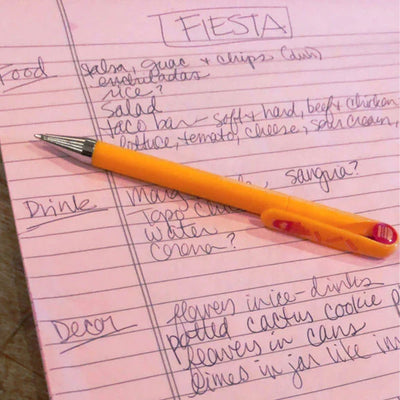 FIESTA
Food
salsa, guac + chips (duh)
enchiladas
rice?
salad
taco bar - soft + hard, beef + chicken
lettuce, tomato, cheese, sour cream,
Drink
sangria?
Topo
water
corona?
Decor
flowers in ice - drinks
potted cactus cookie
flowers in cans
limes in jar like